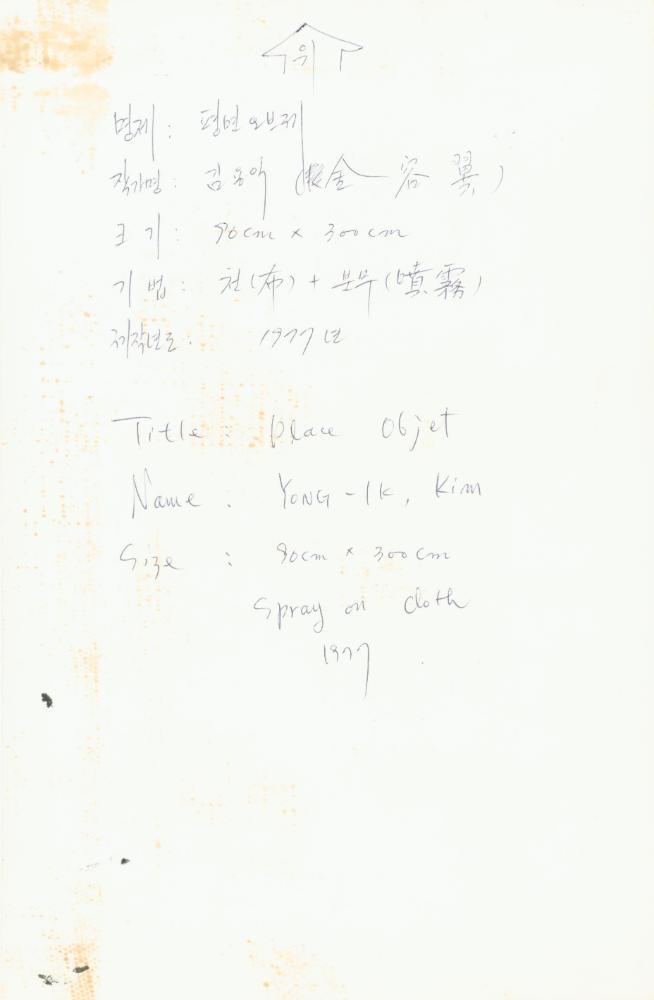 위
명제 : 평면오브제
작가명 : 김용익 (金容翼)
크기 : 90cm x 300cm
기법 : 천(布) + 분무(噴霧)
제작년도 : 1977년
Title : place Objet
Name . YONG-IK, Kim
Size : 90cm x 300cm
Spray on cloth
1977